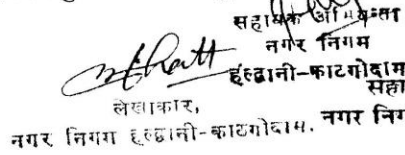 सहायक अभियन्ता
नगर निगम
हल्द्वानी-काठगोदाम
सहा
लेखाकार,
नगर निगम हल्द्वानी-काठगोदाम. नगर निग